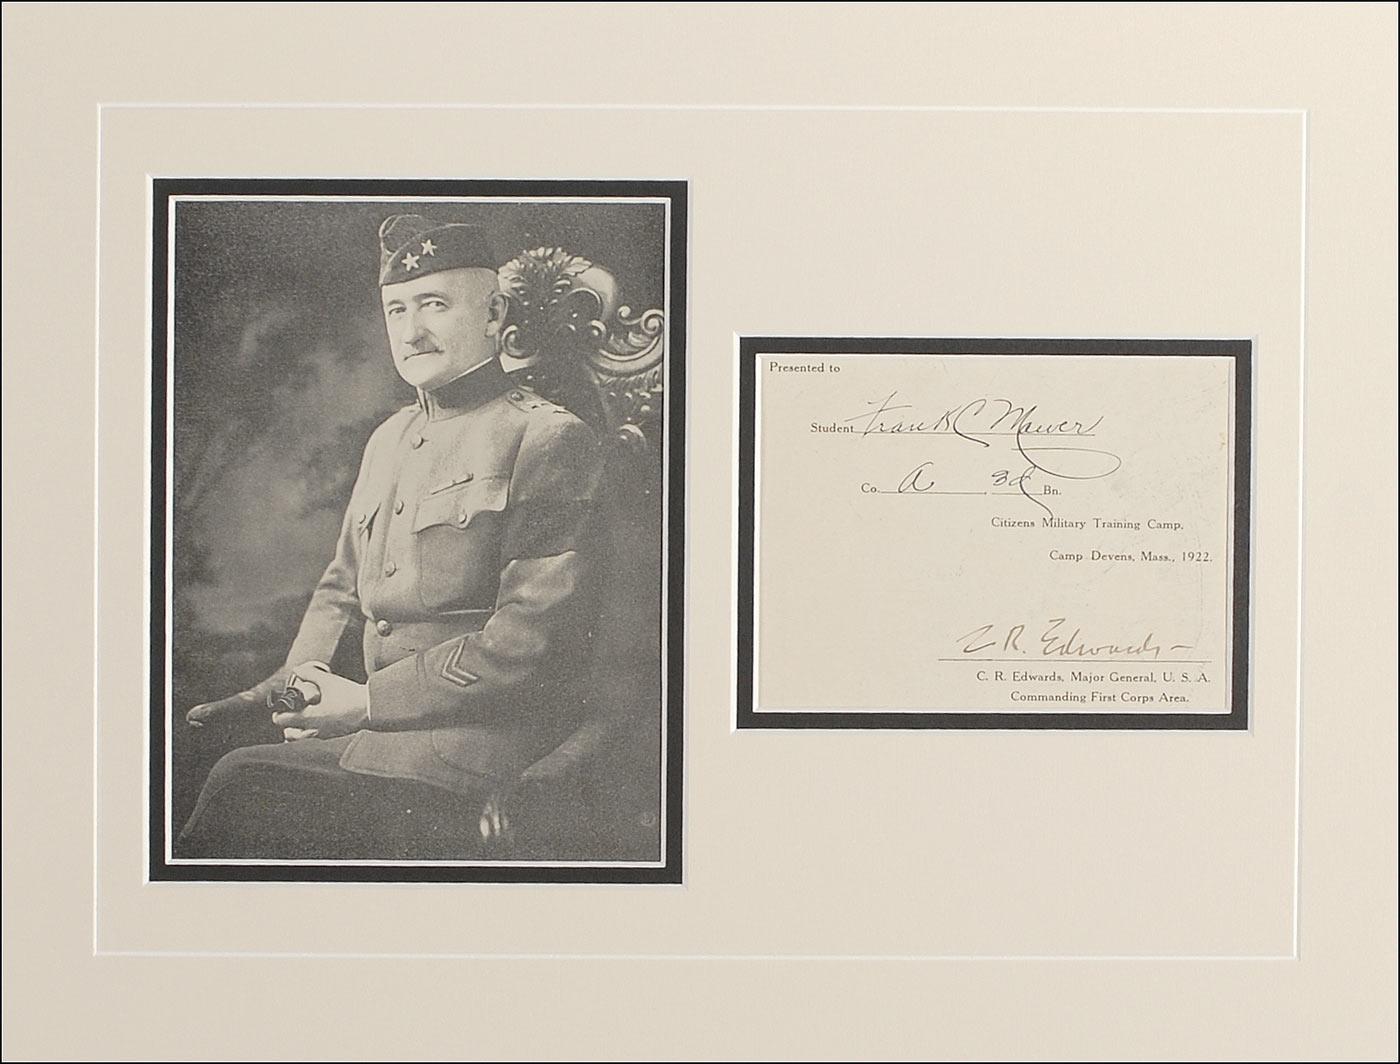 Presented to
Student Frank C Mawer
Co. A 3d Bn.
Citizens Military Training Camp.
Camp Devens, Mass., 1922.
C. R. Edwards
C. R. Edwards, Major General, U. S. A.
Commanding First Corps Area.